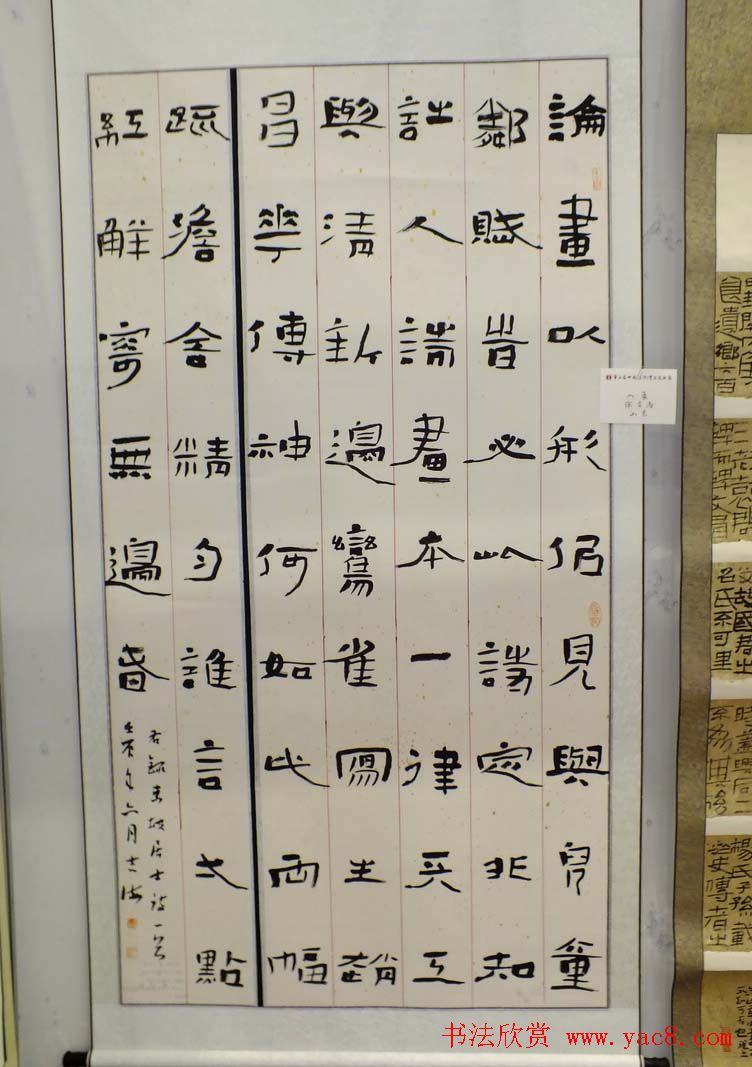 論畫以形似見與兒童
鄰賦旹必此詩定非知
詩人詩畫本一律天工
與清新邊鸞雀寫生趙
昌華傳神何如此兩幅
疏澹含精勻誰言弌點
紅解寄無邊春
右録東坡居士詩一首
年六月士海
书法欣赏 www.yac8.com